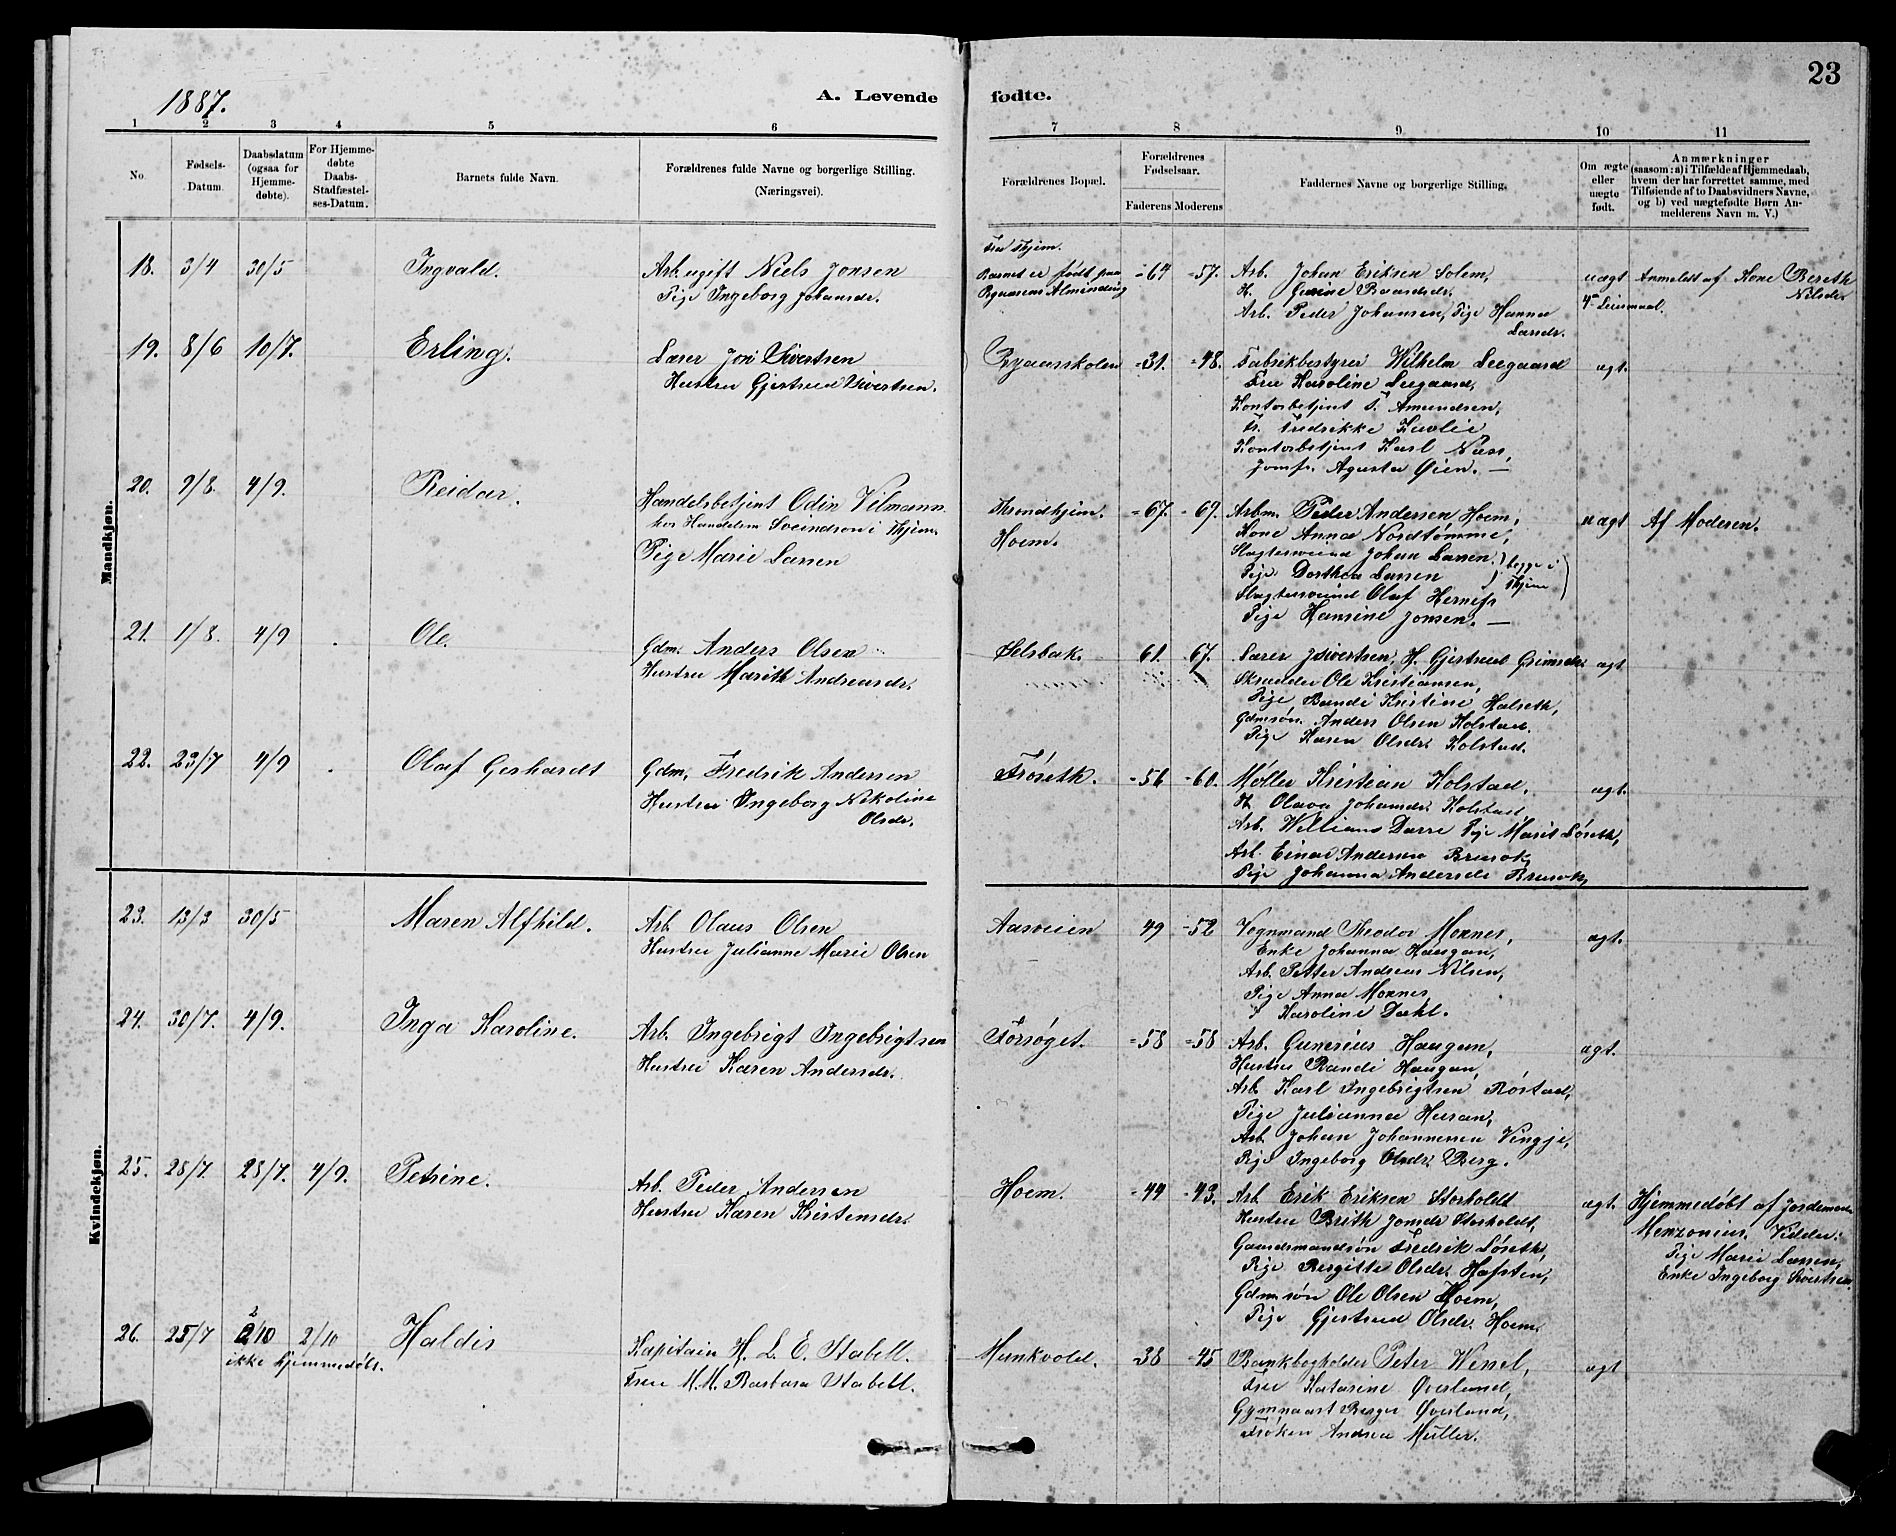 1887.
A. Levende fødte.
23
1 2 3 4 5 6 7 8 9 10 11
No.
Fødsels-Datum.
Daabsdatum (ogsaa for Hjemme-døbte).
For Hjemme-døbte Daabs-Stadfæstel-ses-Datum.
Barnets fulde Navn.
Forældrenes fulde Navne og borgerlige Stilling.
(Næringsvei).
Forældrenes Bopæl.
Forældrenes Fødselsaar.
Faderens Moderens
Faddernes Navne og borgerlige Stilling.
Om ægte eller uægte født.
Anmærkninger
(saasom: a) i Tilfælde af Hjemmedaab,
hvem der har forrettet samme, med
Tilføiende af to Daabsvidners Navne,
og b) ved uægtefødte Børn An-
melderens Navn m. V.)
Mandkjøn.
18. 3/4 30/5 Ingvald.
Arb. ugift Niels Jonsen
Pige Ingeborg Johansdr.
Fra Thjem.
Barnet er født paa
Byaasens Alminding
-64 -57.
Arb. Johan Eriksen Solem,
H. Gurine Baardsdr.
Arb. Peder Johansen, Pige Hanna
Larsdr.
uægt
4de Leiermaal.
Anmeldt af Kone Bereth
Nilsdr.
19. 8/6 10/7. Erling.
Lærer Jon Sivertsen
Hustru Gjertrud Sivertsen.
Byaasskolen -31. -48.
Fabrikbestyrer Wilhelm Leegaard
Frue Karoline Leegaard,
Kontorbetjent T. Amundsen,
Fr. Fredrikke Huvlie
Kontorbetjent Karl Næss,
Jomfr. Agusta Øien. —
ægt.
20. 9/8. 4/9. Reidar.
Handelsbetjent Odin Velmann
hos Handelsm Sveindson i Thjem.
Pige Marie Larsen
Throndhjem.
Hoem.
-67. -69.
Arbm. Peder Andersen Hoem,
Kone Anna Nordtømme,
Slagtersvend Johan Larsen
Pige Dorthea Larsen
begge i Thjem
Slagtersvend Olaf Hernes
Pige Hansine Jonsen. —
uægt
Af Moderen.
21. 1/8. 4/9 Ole.
Gdm. Anders Olsen
Hustru Marith Andreasdr.
Selsbak. 61. 67.
Lærer J Sivertsen, H. Gjertrud Grimsdr.
Skrædder Ole Kristiansen,
Pige Randi Kristine Halseth,
Gdmsøn. Anders Olsen Kolstad.
Pige Karen Olsdr. Kolstad.
ægt
22. 23/7 4/9 Olaf Gerhardt
Gdm. Fredrik Andersen
Hustru Ingeborg Nikoline
Olsdr.
Frøseth. -56 -60.
Møller Kristian Kolstad,
H. Olava Johansdr. Kolstad.
Arb. William Darre Pige Marit Løseth,
Arb. Einar Andersen Brurok,
Pige Johanna Andersdr Brurok,
ægt.
Kvindekjøn.
23. 13/3 30/5 Maren Alfhild.
Arb. Olaus Olsen
Hustru Julianne Marie Olsen
Aasveien 49 -52
Vognmand Theodor Moxnes,
Enke Johanna Haugan,
Arb. Petter Andreas Nilsen,
Pige Anna Moxnes
S Karoline Dahl.
ægt.
24. 30/7. 4/9. Inga Karoline.
Arb. Ingebrigt Ingebrigtsen
Hustru Karen Andersdr.
Forsøget. -58 -58
Arb. Gunerius Haugan,
Hustru Randi Haugan,
Arb. Karl Ingebrigtsen Røstad,
Pige Julianna Husan,
Arb. Johan Johannesen Vingje,
Pige Ingeborg Olsdr. Berg.
ægt.
25. 28/7. 28/7. 4/9. Petrine.
Arb. Peder Andersen
Hustru Karen Kristensdr.
Hoem. -44 -43.
Arb Erik Eriksen Storholdt
Hustru Brith Jonsdr Storholdt,
Gaardsmandsøn Fredrik Løseth,
Pige Bergitte Olsdr. Hafsten,
Gdmsøn Ole Olsen Hoem,
Pige Gjertrud Olsdr. Hoem.
ægt.
Hjemmedøbt af Jordemoder
Menzonius. Vidder:
Pige Marie Larsen,
Enke Ingeborg Sivertsen
26. 25/7 2/10 2/10 Haldis
ikke hjemmedøbt.
Kapitain H. L. E. Stabell.
Frue M. M. Barbara Stabell.
Munkvold. -38 -45
Bankbogholder Peter Wessel,
Frue Katarine Øverland,
Gymnasist Berger Øverland,
Frøken Andrea Müller.
ægt